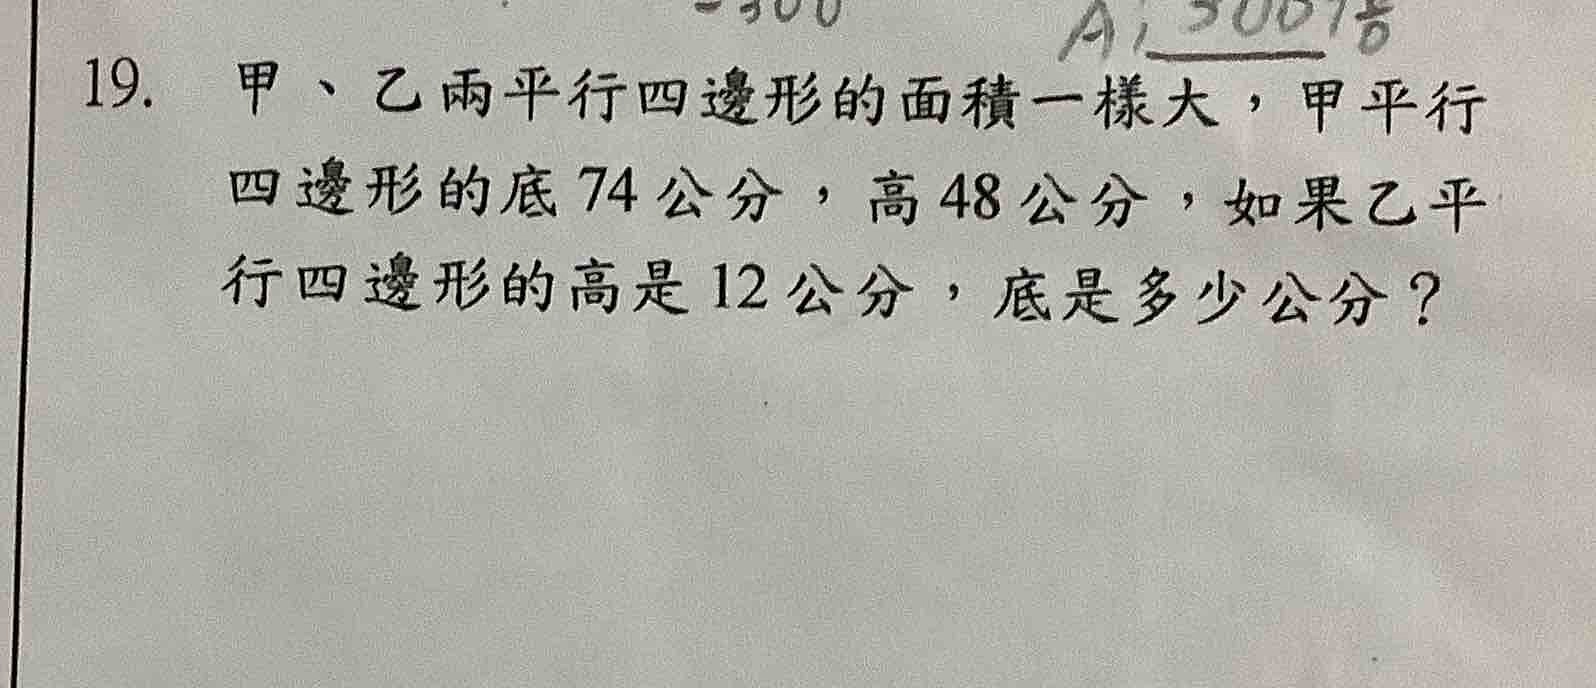 19. 甲、乙兩平行四邊形的面積一樣大，甲平行
四邊形的底74公分，高48公分，如果乙平
行四邊形的高是12公分，底是多少公分？